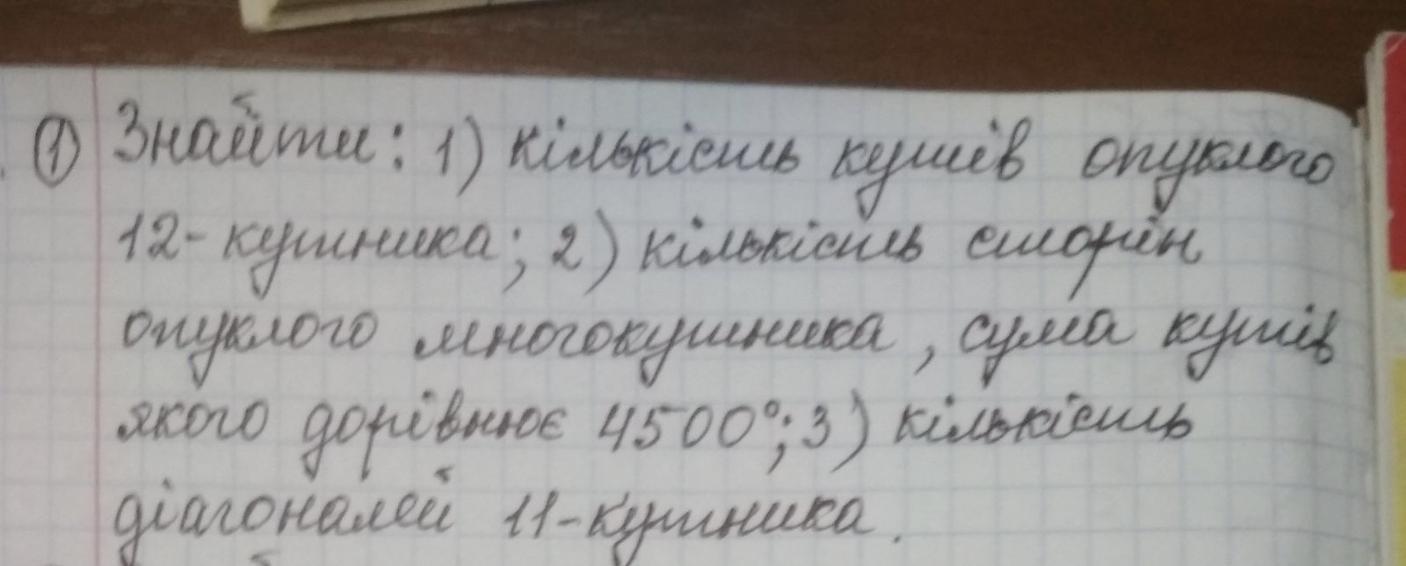 ① Знайти: 1) кількість кутів опуклого
12-кутника; 2) кількість сторін
опуклого многокутника, сума кутів
якого дорівнює 4500°; 3) кількість
діагоналей 11-кутника.